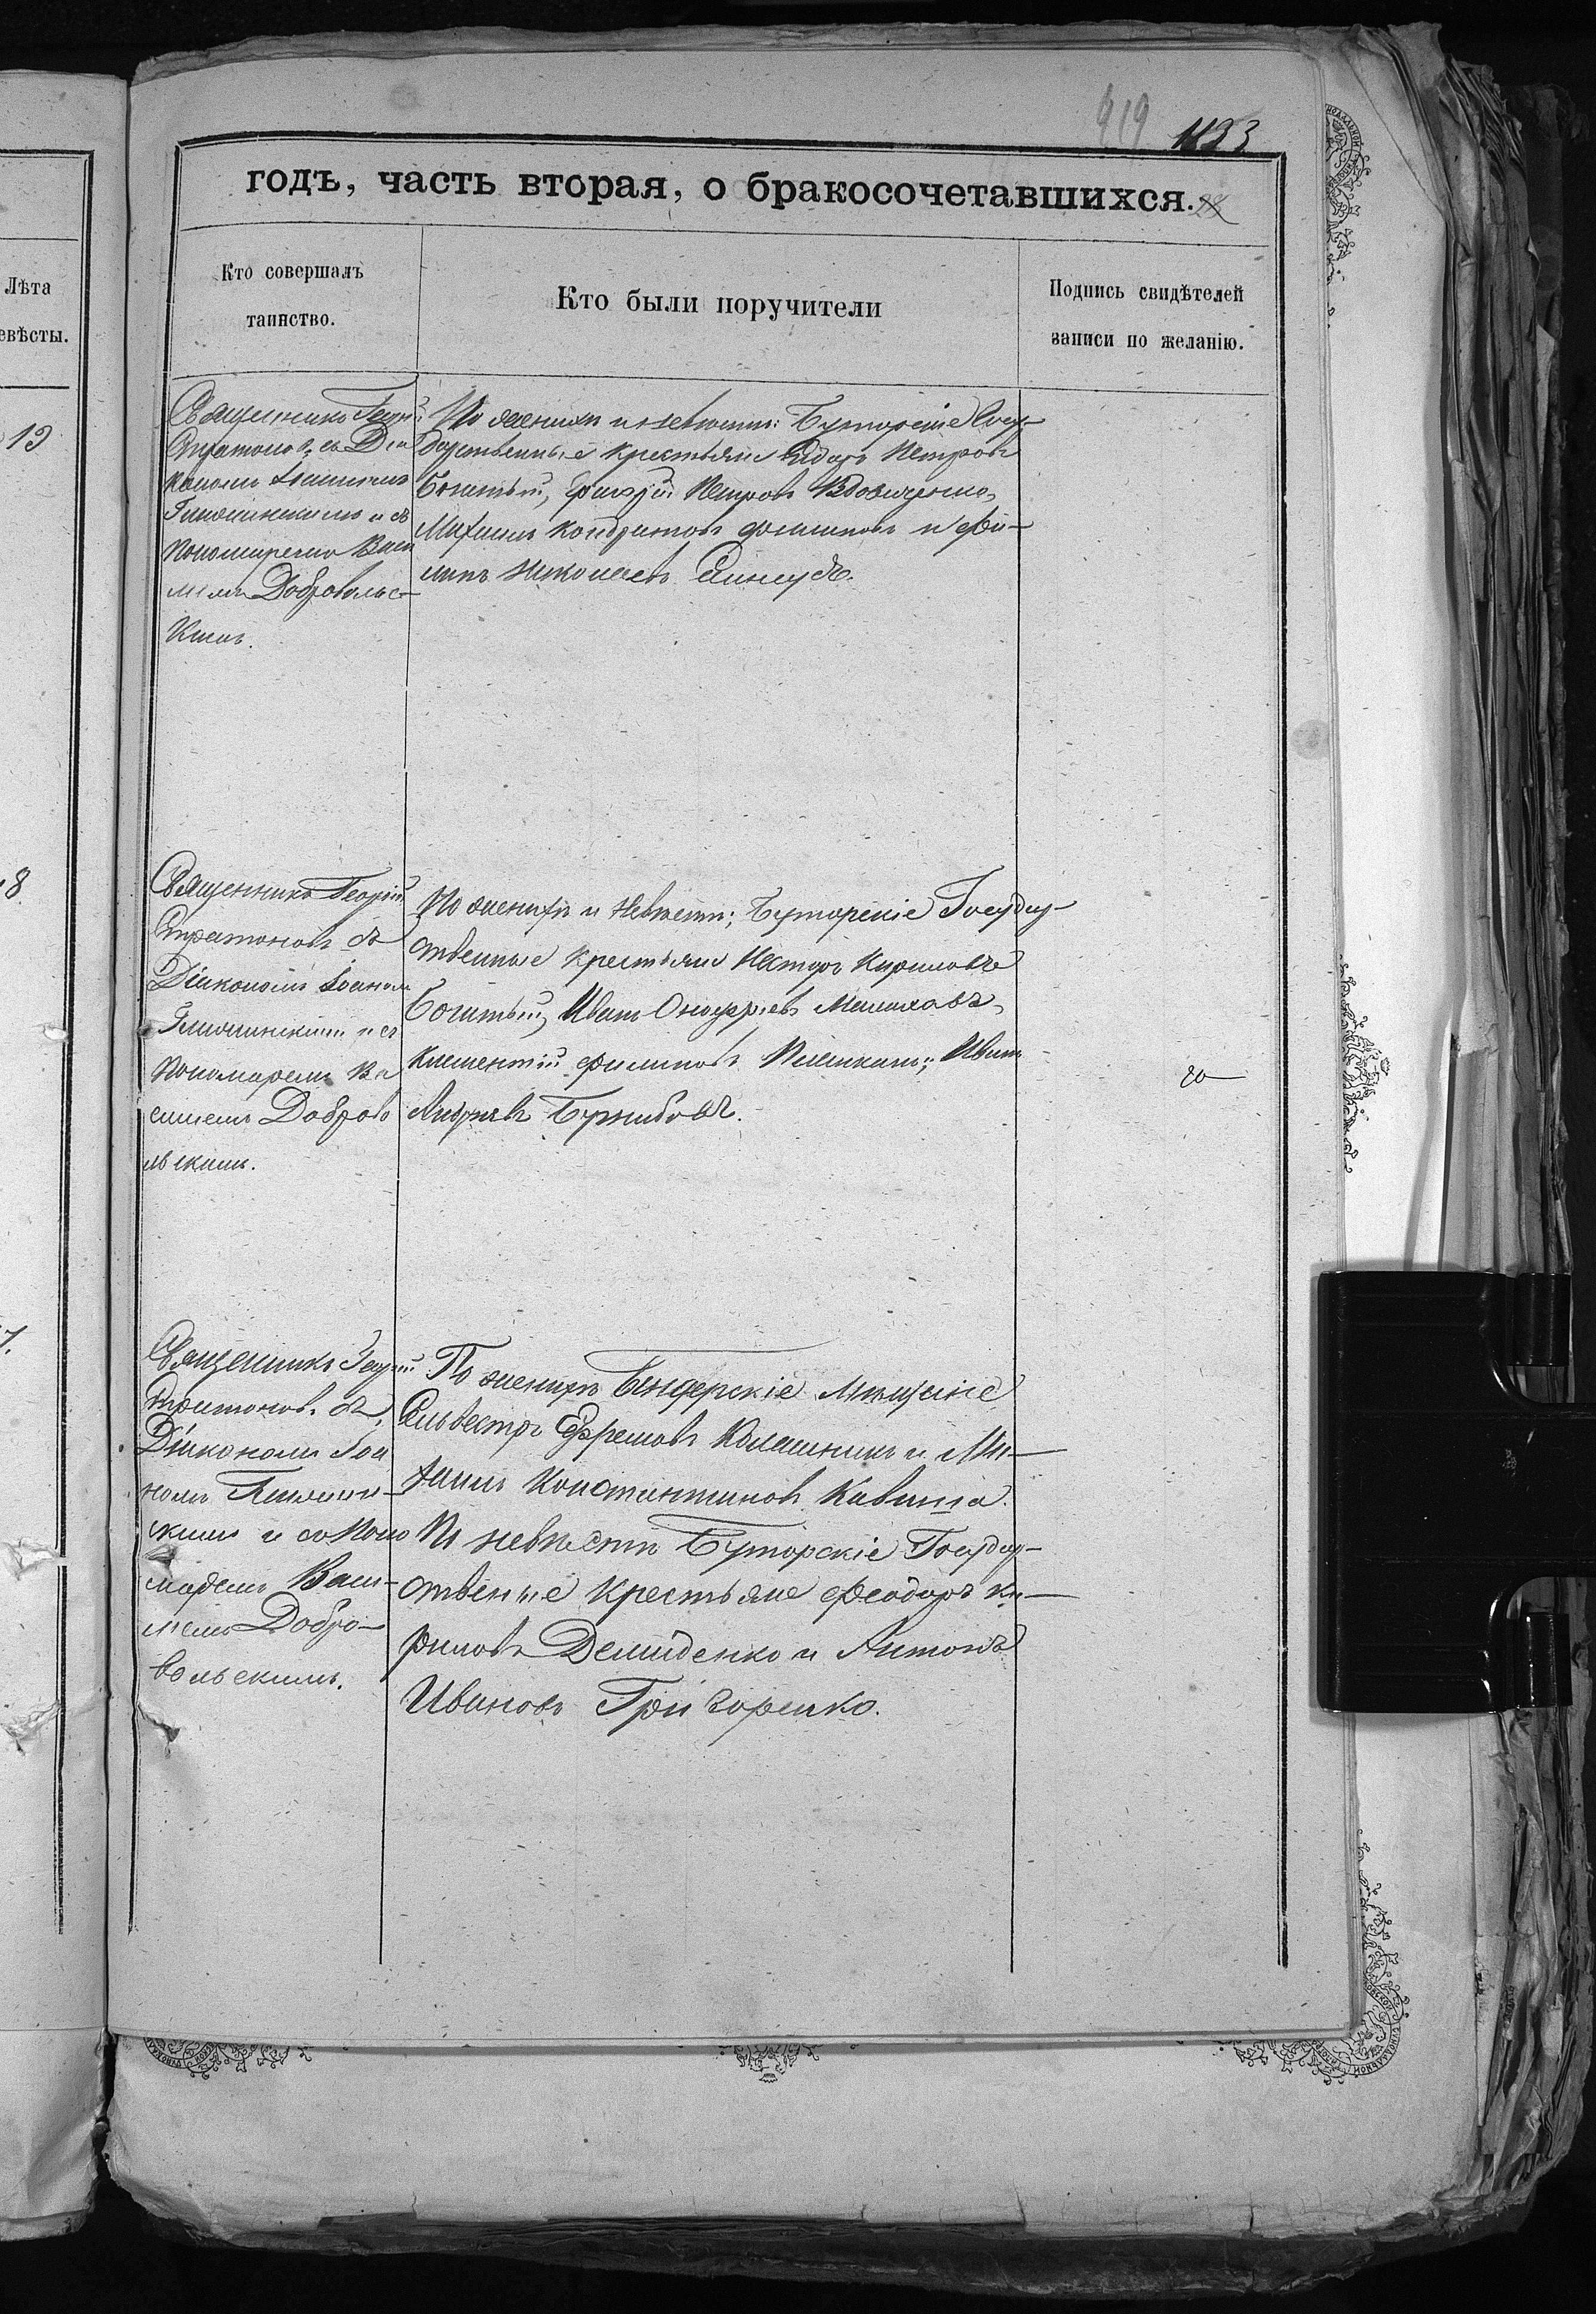 419 1133
годъ, часть вторая, о бракосочетавшихся.
Лѣта
евѣсты.
Кто совершалъ
таинство.
Кто были поручители
Подпись свидѣтелей
записи по желанію.
19
Священникъ Георгій
Стратоновъ, съ Діа
кономъ Іоанномъ
и съ
Пономаремъ Васи
лiемъ Добровольс-
кимъ.
По женихѣ и невѣстѣ: Буторскіе Госу-
дарственные крестьяне Сидоръ Петровъ
Богатый, Петровъ Вдовиченко,
Михаилъ Кондратовъ Филиповъ и Фи-
липъ Николаевъ
8
Священникъ Георгій
Стратоновъ съ
Діакономъ Іоаномъ
и съ
Пономаремъ Ва
силіемъ Доброво
льскимъ.
По женихѣ и невѣстѣ; Буторскіе Государ-
ственные крестьяне Несторъ Кириловъ
Богатый, Иванъ Онуфріевъ Малаховъ,
Климентій Филиповъ Иванъ
Андреевъ
20
7.
Священникъ Георгій
Стратоновъ съ
Діакономъ Іоа
номъ
скимъ и съ Поно
маремъ Васи-
лiемъ Добро-
вольскимъ.
По женихѣ Бендерскіе Мѣщане
Сильвестръ Ефремовъ Колешникъ и Ми-
хаилъ Константиновъ
По невѣстѣ Буторскіе Государ-
ственые крестьяне Феодоръ Ки-
риловъ Демиденко и Антонъ
Ивановъ Григоренко.